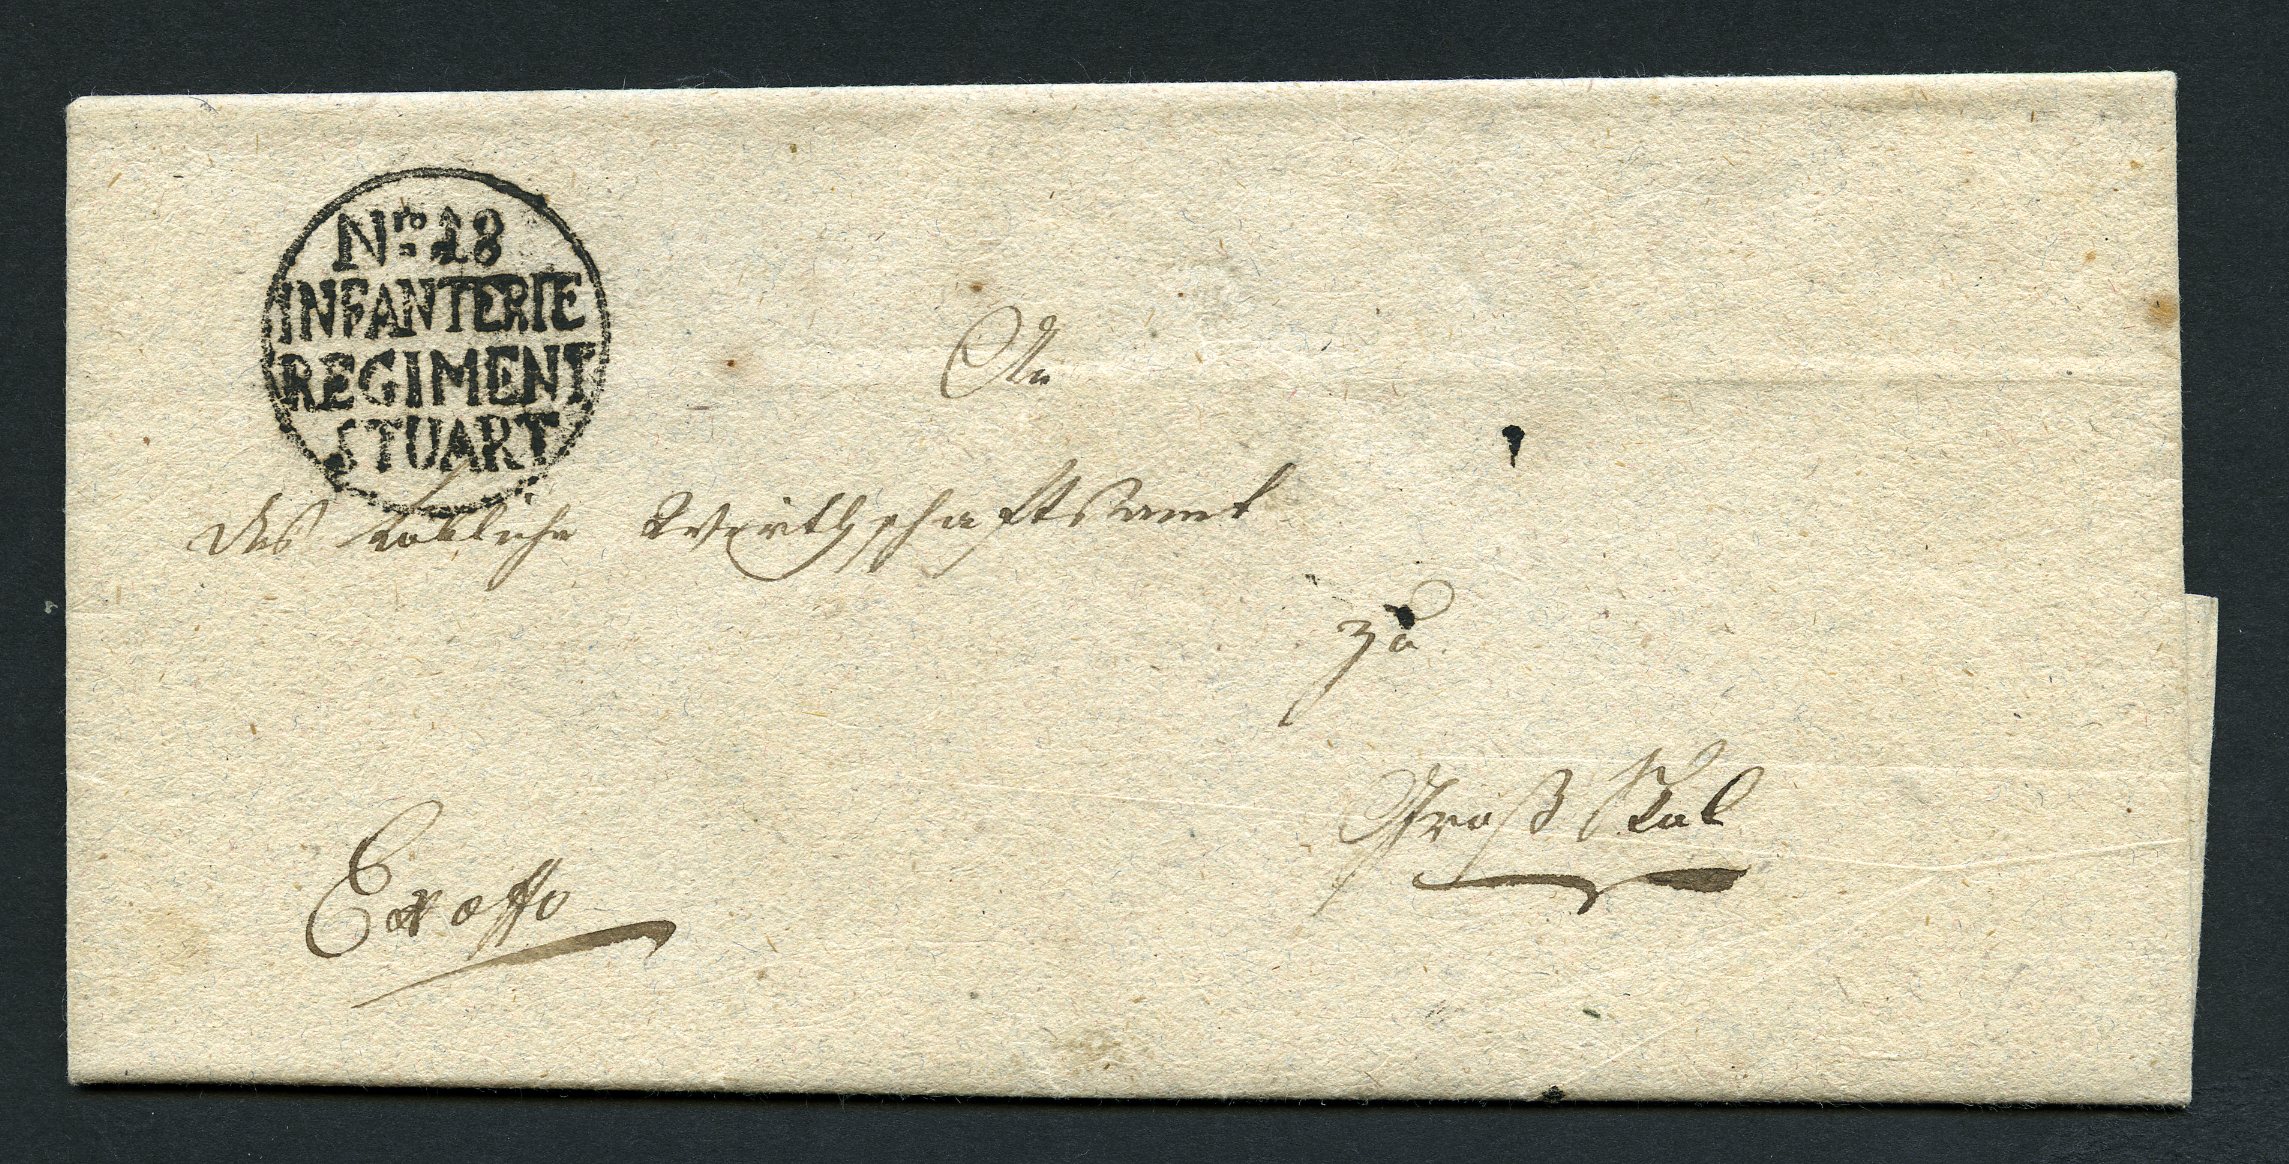 Nro 18
INFANTERIE
REGIMENT
STUART
An
das löbliche Wirthschaftsamt
zu
Groß Skal
Ex offo